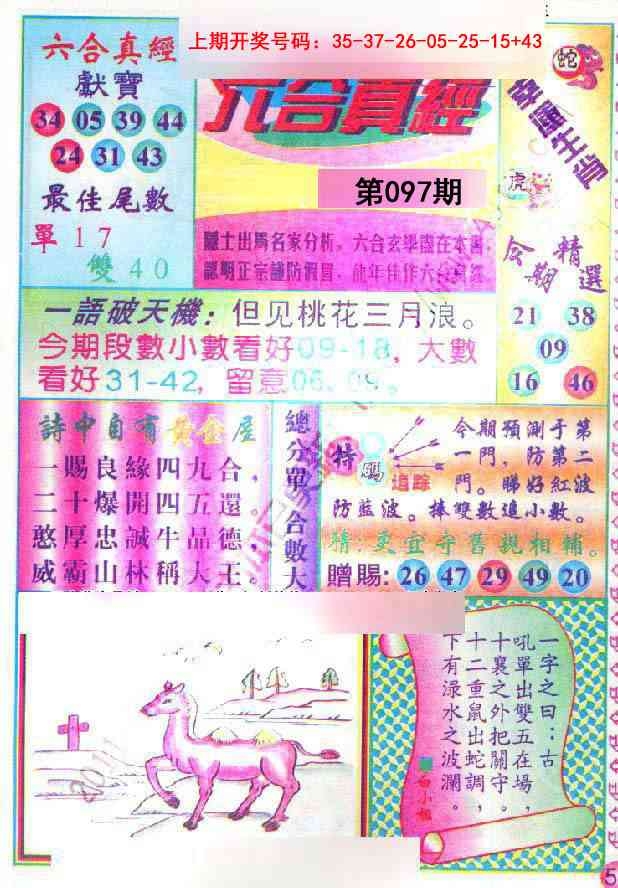 上期开奖号码：35-37-26-05-25-15+43
六合真經
獻寶
34 05 39 44
24 31 43
最佳尾數
單 1 7
雙 4 0
六合真經
第097期
隱士出馬名家分析，六合玄學盡在本書，
蛇
幸運生肖
虎
今期精選
21 38
09
16 46
一語破天機：但见桃花三月浪。
今期段數小數看好09-18，大數
看好31-42，留意06.09。
詩中自有黃金屋
一賜良緣四九合，
二十爆開四五還。
憨厚忠誠牛品德，
威霸山林稱大王。
總分單 合數大
特碼
追踪
今期預測于第
一門，防第二
門。睇好紅波
防藍波。捧雙數追小數。
猜：更宜守舊親相輔。
贈賜：26 47 29 49 20
一字之曰：古
吼單出雙五在場，
十襄之外把關守。
十二重鼠出蛇調，
下有渌水之波瀾。
白小姐
5